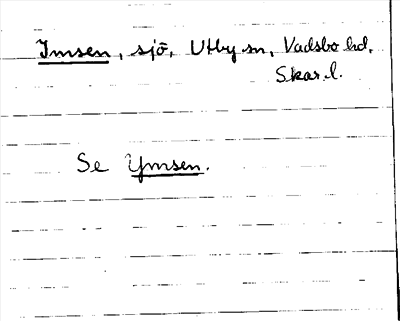 Imsen, sjö, Utby sn, Vadsbo hd,
Skar. l.
Se Ymsen.